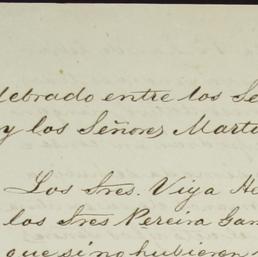 lebrado entre los Se
y los Señores Marti
Los Sres. Viya He
los Sres Pereira Gam
que si no hubieron